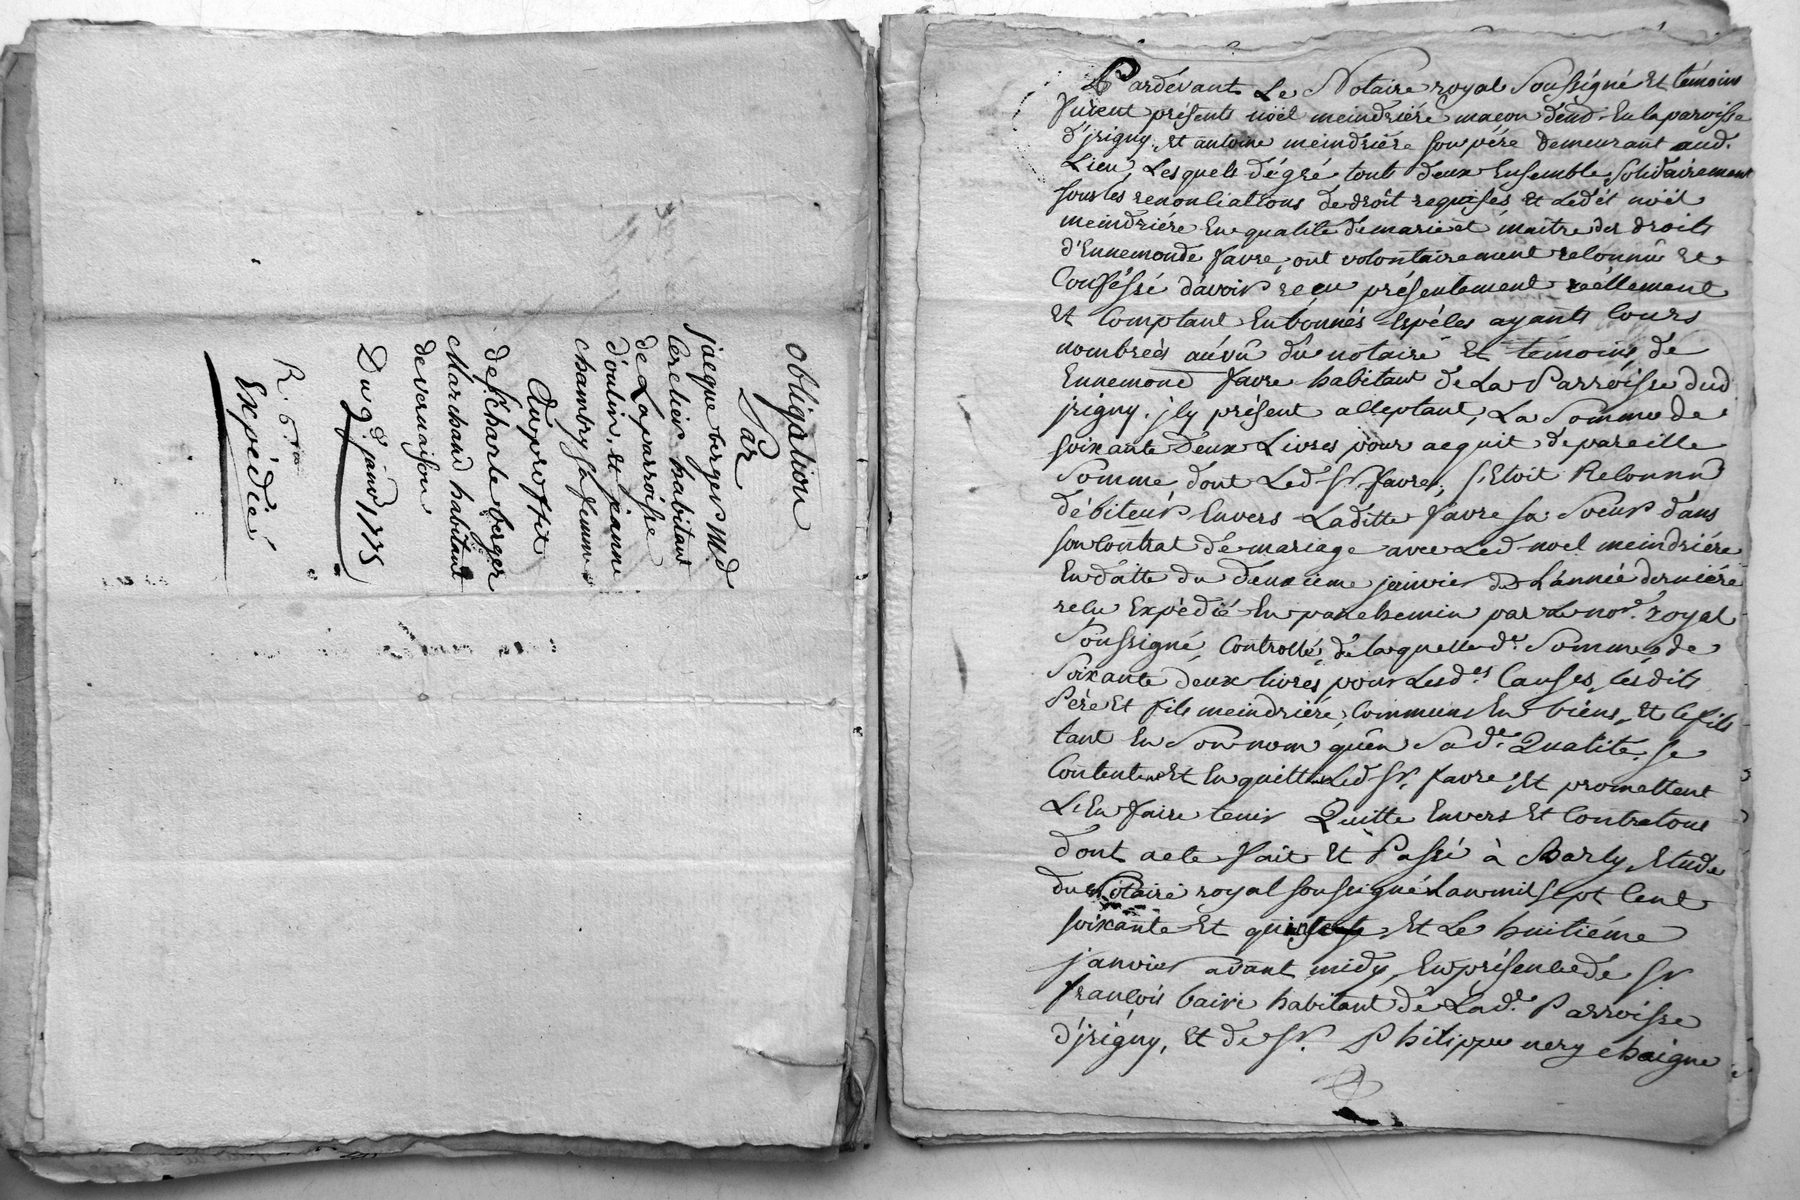 obligation
Par
jacque berger M.d
Cerclier habitant
de La parroisse
d'oulin, et jeanne
chambry sa femme
Au proffit
de fcharle berger
Marchand habitant
de vernaison
Du 9.e janv.r 1775
R. 6.
Expédié
Pardevant Le Notaire royal Soussigné et témoins
furent présents noël meindriére maçon dem.t En la paroisse
d'jrigny, et antoine meindriére son pére demeurant aud.
Lieu, Lesquels dégré touts deux Ensemble Solidairement
sous les renonciations de droit requises et Ledit noël
meindriére En qualité de mari et maître des droits
d'Ennemonde favre, ont volontairement reconnû et
Confessé d'avoir reçu présentement réellement
et Comptant En bonnes Espéces ayants Cours
nombreés aú vû dú notaire et témoins, de
Ennemond favre habitant de La Parroisse dud
jrigny, jcy présent acceptant, La Somme de
soixante deux Livres pour acquit de pareille
Somme, dont Led. Sr. favre, s'Etoit Reconnu
débiteur Envers Laditte favre sa Soeur dans
son Contrat de mariage avec Led. noel meindriére
En datte du deuxieme janvier de L'année derniére
reçu Expédié En parchemin par Le no.re royal
Soussigné, Controllé, de laquelle d.e Somme de
Soixante deux livres pour Lesd.es Causes, lesdits
Pére et fils meindriére, Communs En biens, et le fils
tant En Son nom qu'en Sa d.e Qualité, se
Contentent Et En quittent Led. Sr. favre, Et promettent
L'En faire tenir Quitte Envers et Contre tous
dont acte fait Et Passé à Charly, Etude
du Notaire royal soussigné L'an mil sept Cent
soixante et quinze, Et Le huitiéme
janvier avant midy, En présence de Sr.
françois baire habitant de La d.e Parroisse
d'jrigny, et de Sr. Philippe nery chaigne